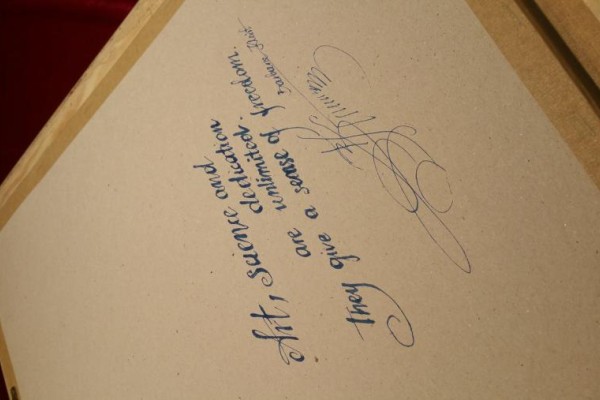 Art, science and
dedication
are unlimited.
They give a sense of freedom.